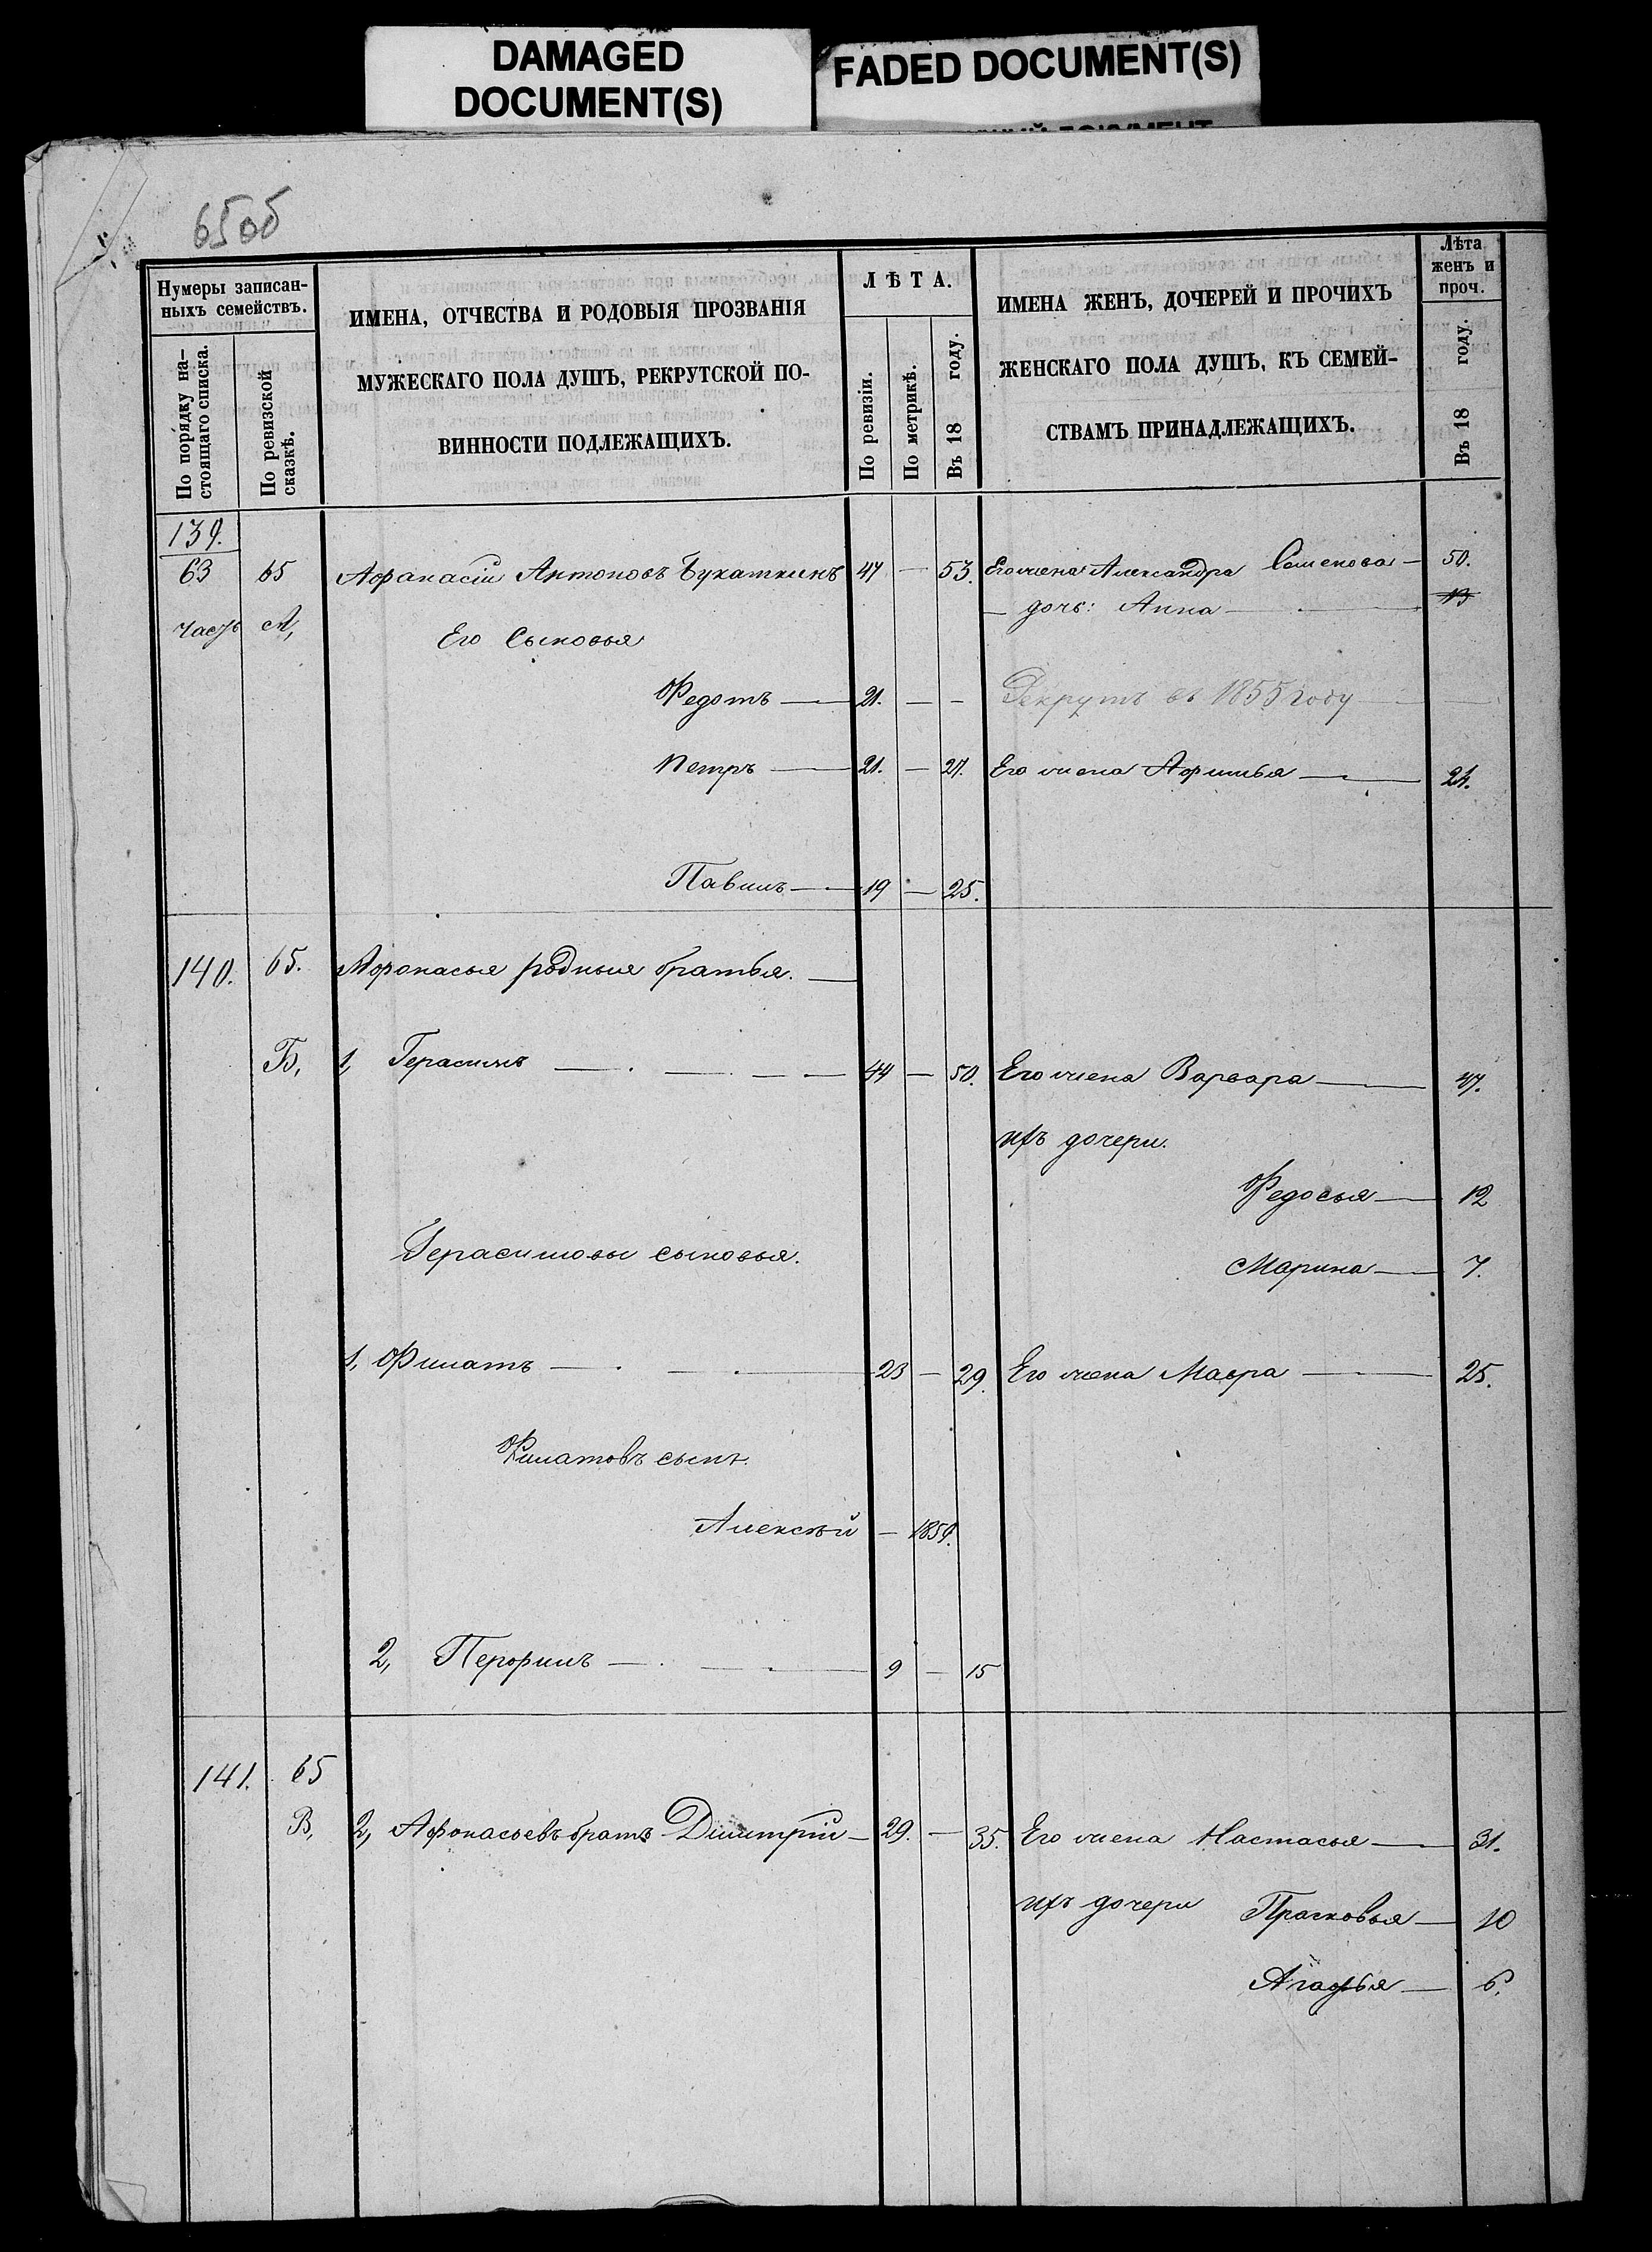 DAMAGED
DOCUMENT(S)
FADED DOCUMENT(S)
65об
Нумеры записан-
ныхъ семействъ.
По порядку на-
стоящаго списка.
По ревизской
сказкѣ.
ИМЕНА, ОТЧЕСТВА И РОДОВЫЯ ПРОЗВАНІЯ
МУЖЕСКАГО ПОЛА ДУШЪ, РЕКРУТСКОЙ ПО-
ВИННОСТИ ПОДЛЕЖАЩИХЪ.
ЛѢТА.
По ревизіи.
По метрикѣ.
Въ 18 году.
ИМЕНА ЖЕНЪ, ДОЧЕРЕЙ И ПРОЧИХЪ
ЖЕНСКАГО ПОЛА ДУШЪ, КЪ СЕМЕЙ-
СТВАМЪ ПРИНАДЛЕЖАЩИХЪ.
Лѣта
женъ и
проч.
Въ 18 году.
139.
63 65 Афанасій Антоновъ Букаткинъ 47 — 53. Его жена Александра Семенова — 50.
— дочь: Анна — 13
часть А, Его Сыновья
Федотъ — 21. — — Рекрутъ въ 1855 году —
Петръ — 21. — 27. Его жена Афимья — 24.
Павилъ — 19 — 25.
140. 65. Афонасья родныя братья. —
Б, 1, Герасимъ — 44 — 50. Его жена Варвара — 47.
ихъ дочери.
Федосья — 12
Герасимовы сыновья.
Марина — 7.
1, Филатъ — 23 — 29. Его жена Мавра — 25.
Филатовъ сынъ.
Алексѣй — 1859.
2, Перфилъ — 9 — 15
141. 65
В, 2, Афонасьевъ братъ Димитрій — 29. — 35. Его жена Настасья — 31.
ихъ дочери Прасковья — 10
Агафья — 6.